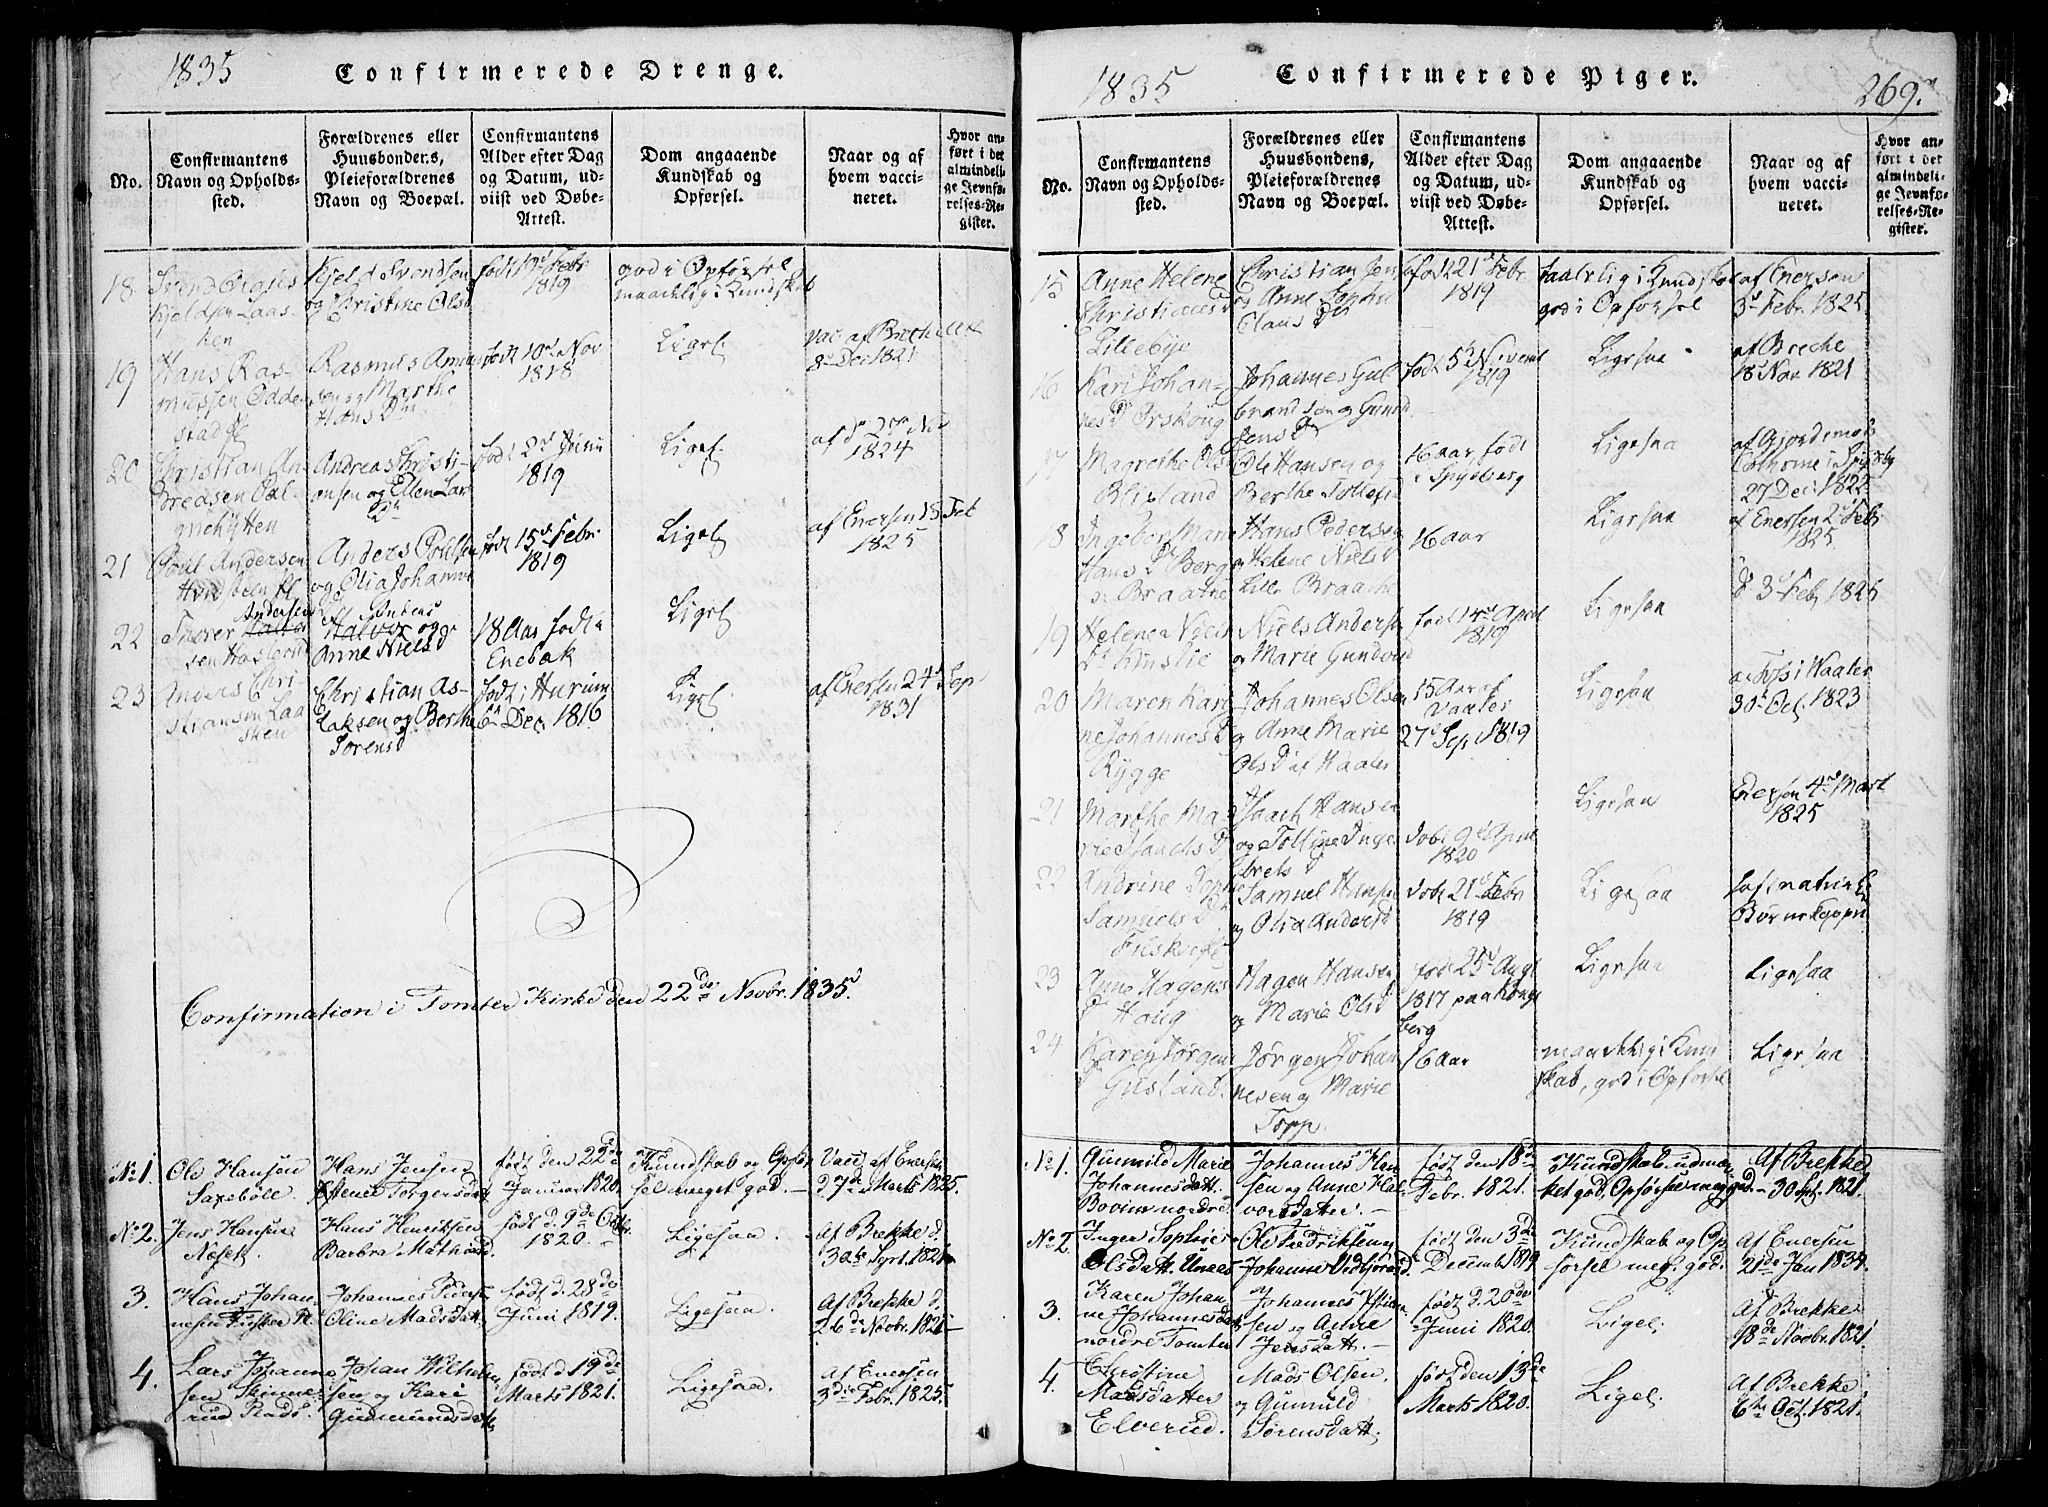 1835
Confirmerede Drenge.
No.
Confirmantens
Navn og Opholds-
sted.
Forældrenes eller
Huusbonders,
Pleieforældrenes
Navn og Boepæl.
Confirmantens
Alder efter Dag
og Datum, ud-
viist ved Døbe-
Attest.
Dom angaaende
Kundskab og
Opførsel.
Naar og af
hvem vacci-
neret.
Hvor an-
ført i det
almindeli-
ge Jevnfø-
relses-Re-
gister.
18
Svend Olaus
Kjeldsen Laas-
ken
Kjeld Svendsen
og Christine Olsd
født 19d Febr
1819
god i Opførsel
maadelig i Kundskab
19
Hans Ras-
mussen Odde
stad
Rasmus
sen og Marthe
Hans Dn
født 10d Nov
1818
Ligel
Vac af Brekke
8de Dec 1821
20
Christian An-
dreasen
Andreas Christi-
ansen og Ellen Lars
Dn
født 2d Juni
1819
Ligel.
af do 27de Nov
1824
21
Poul Andersen
Anders Poulsen
og Olia Johanne
født 15d Febr.
1819
Ligel
af Enersen 18 Feb
1825
22
Thorer Andersen
sen Haslerud
Halvor og
Anne Nielsd
18 Aar født i
Enebak
Ligel
23
Anders Chri-
stiansen Laa
sken
Christian As-
laksen og Berthe
Sørensd
født i Hurum
6d Dec. 1816
Ligel.
af Enersen 24d Sep
1831
Confirmation i Tomter Kirke den 22de Novbr. 1835.
No 1.
Ole Hansen
Saxebøle.
Hans Jensen
Torgersdat
født den 22de
Januar 1820.
Kundskab og Opfør
sel meget god. —
Vacc. af Enersen
d 7de Marts 1825.
No 2.
Jens Hansen
Næset.
Hans Henriksen
Barbra Mathisd.
født d. 9de Octbr.
1820. —
Ligesaa.
Af Brekke d.
30te Sept. 1821
3.
Hans Johan-
nesen
Johannes Peders
Oline Madsdatt
født d. 28de
Juni 1819.
Ligesaa.
Af Brekke d.
26de Novbr. 1821
4.
Lars Johanne
sen Skinne
rud Rads.
Johan Wilhelm
sen og Kari
Gudmundsdatt
født d. 19de
Marts 1821.
Ligesaa.
Af Enersen
3die Febr. 1825.
1835
Confirmerede Piger.
269.
No.
Confirmantens
Navn og Opholds-
sted.
Forældrenes eller
Huusbondens,
Pleieforældrenes
Navn og Boepæl.
Confirmantens
Alder efter Dag
og Datum, ud-
viist ved Døbe-
Attest.
Dom angaaende
Kundskab og
Opførsel.
Naar og af
hvem vacci-
neret.
Hvor an-
ført i det
almindeli-
ge Jevnfø-
relses-Re-
gister.
15
Anne Helene
Christiansd
Lillebye
Christian Jens
og Anne Sophie
Claus Dn
født 21d Febr
1819
taalelig i Kundskab
god i Opførsel
af Enersen
3d Febr. 1825
16
Kari Johan-
nes D Ørskoug
Johannes Gul
brandsen og Gunild
Jens D
født 5d Novemb
1819
Ligesaa
af Brecke
18d Nov. 1821
17
Magrethe Ols D
Blixland
Ole Hansen og
Berthe Tollefsd
16 Aar født
i Spydberg
Ligesaa
af Gjordemod
i Spydeb
27 Dec: 1822
18
Ingebor Marie
Hans D Berg
Braatne
Hans Pedersen
og Helene Nielsd
Lille Braathe
16 Aar
Ligesaa
af Enersen 2d Febr
1825
19
Helene Niels
D
Niels Anders
og Marie Gundersd
født 14d April
1819
Ligesaa
do 3d Feb 1825
20
Maren Kari
ne Johannes D
Rygge
Johannes Olsen
og Anne Marie
Ols D af Waaler
15 Aar af
Vaaler
27d Sep 1819
Ligesaa
i Waaler
30d Oct. 1823
21
Marthe Ma
rie Isaachs D
Isaach Hansen
og Tolline Inge
brets D
Døbt 9d April
1820
Ligesaa
4de Mart
1825
22
Andrine Sophie
Samuels D
Samuel Hans
og Olia Andersd
Døbt 21d Febr
1819
Ligesaa
haft naturlige
Børnekopper
23
Anne Hagens
D Haug
Hagen Hansen
og Marie Olsd
født 25d Augt
1817 paa Kongs
berg
Ligesaa
Ligesaa
24
Karen Jørgens
D Gusland
Jørgen Johan
nesen og Marie
Topp.
16 Aar
maadelig i Kund
skab, god i Opførsel
Ligesaa
No 1.
Gunnild Marie
Johannesdatt.
Bovim nordre
Johannes Han
sen og Anne Hal-
vorsdatter. —
født den 18de
Febr. 1821.
Kundskab udmær
ket god, Opførsel meg. god. —
Af Brekke
30 Spt. 1821.
No 2.
Inger Sophie
Olsdatt.
Ole Fredriksen og
Johanne
født den 3de
Decemb 1819
Kundskab og Op
førsel meg. god.
Af Enersen
21de Jan 1834.
3.
Karen Johan
ne Johannesdatt
nordre Tomter
Johannes
sen og Anne
Jensdatt. —
født d. 20de
Juni 1820.
Ligel.
Af Brekke
18de Novbr. 1821
4.
Christine
Madsdatter
Elverud.
Mads Olsen
og Gunnild
Sørensdatt.
født den 13de
Marts 1820.
Ligel.
Af Brekke
6te Oct. 1821.